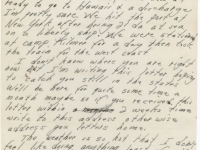 ready to go to Hawaii & a
I'm pretty sure we hit the port at
New York after being I do at sea
on to liberty ship. We were stationed
at Camp Kilmer for a day then took
a train for the west coast
I don't know where you are right
now but I'm writing this letter hoping
to catch you still in the states. I
will be here for quite some time a
month maybe so if you received this
letter within a 3 weeks time
write to this address other wise
address your letters home.
The weather is so hot that I don't
feel like doing anything